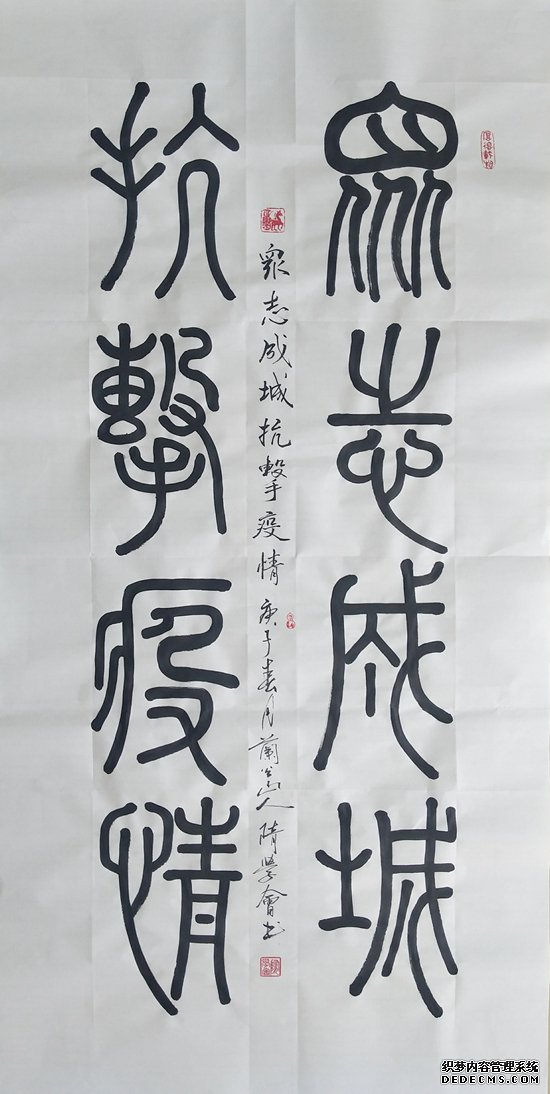 眾志成城
抗擊疫情
眾志成城抗擊疫情 庚子春月蘭公山人隋學會书
织梦内容管理系统
DEDECMS.COM